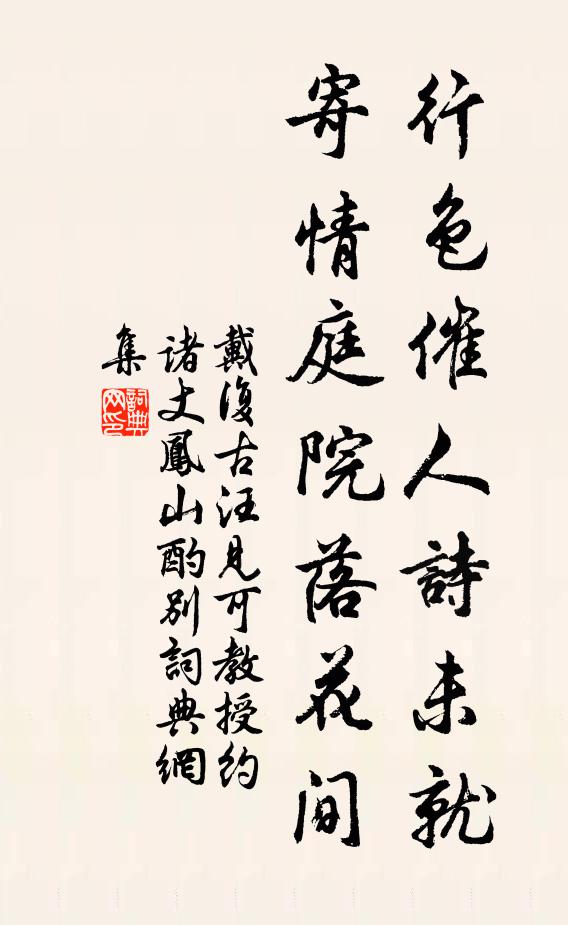 行色催人詩未就
寄情庭院落花间
戴復古汪見可教授約
诸丈鳳山酌别詞典網
集
詞典
网印